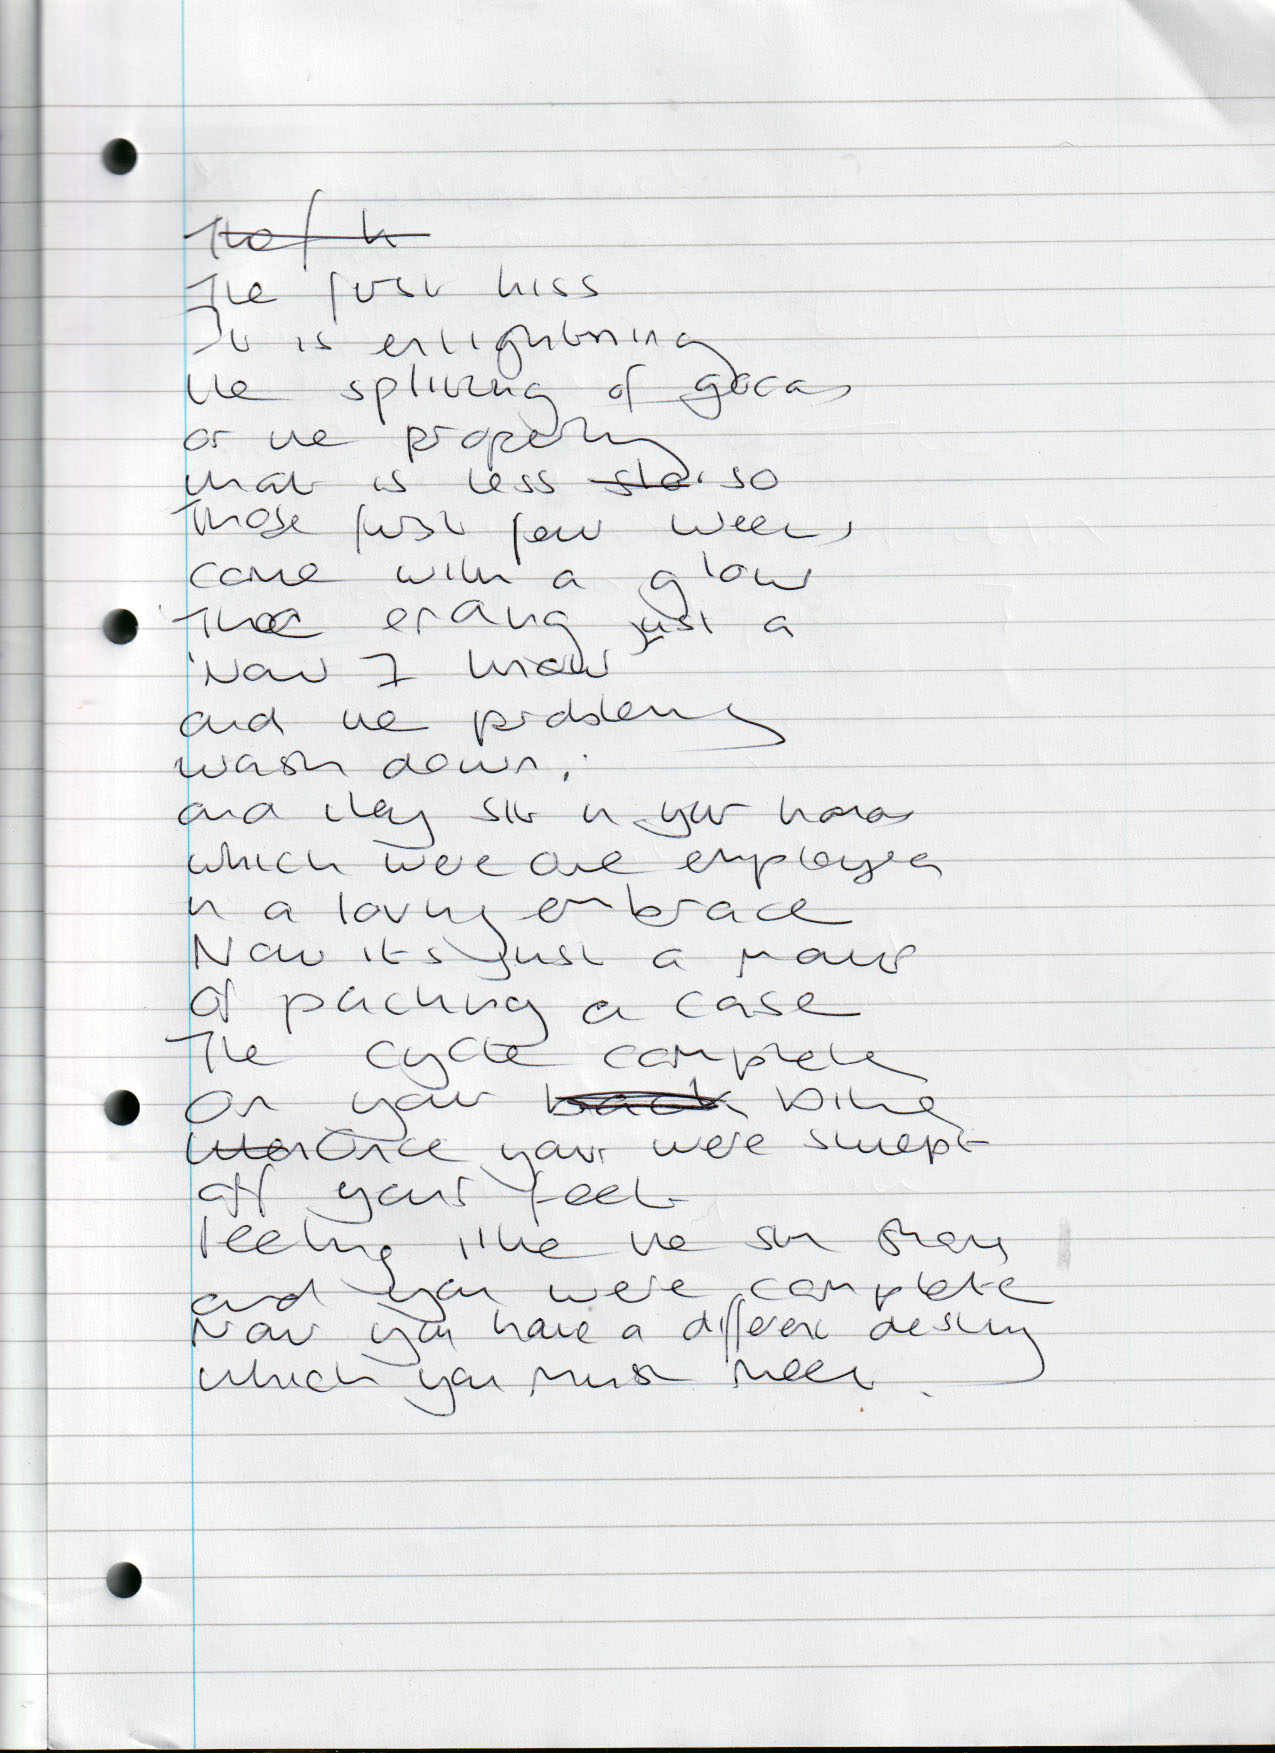 The first kiss
It is enlightning
the spliting of goods
or the property
that is less so
Those first few weeks
come with a glow
The ending just a
Now I know
and the problems
wash down.
and they sit in your hands
which were once employed
in a loving embrace
Now its just a matter
of packing a case
The cycle complete
On your back bike
Once your were swept
off your feet
feeling like the sun shone
and you were complete
Now you have a different destiny
which you must meet.